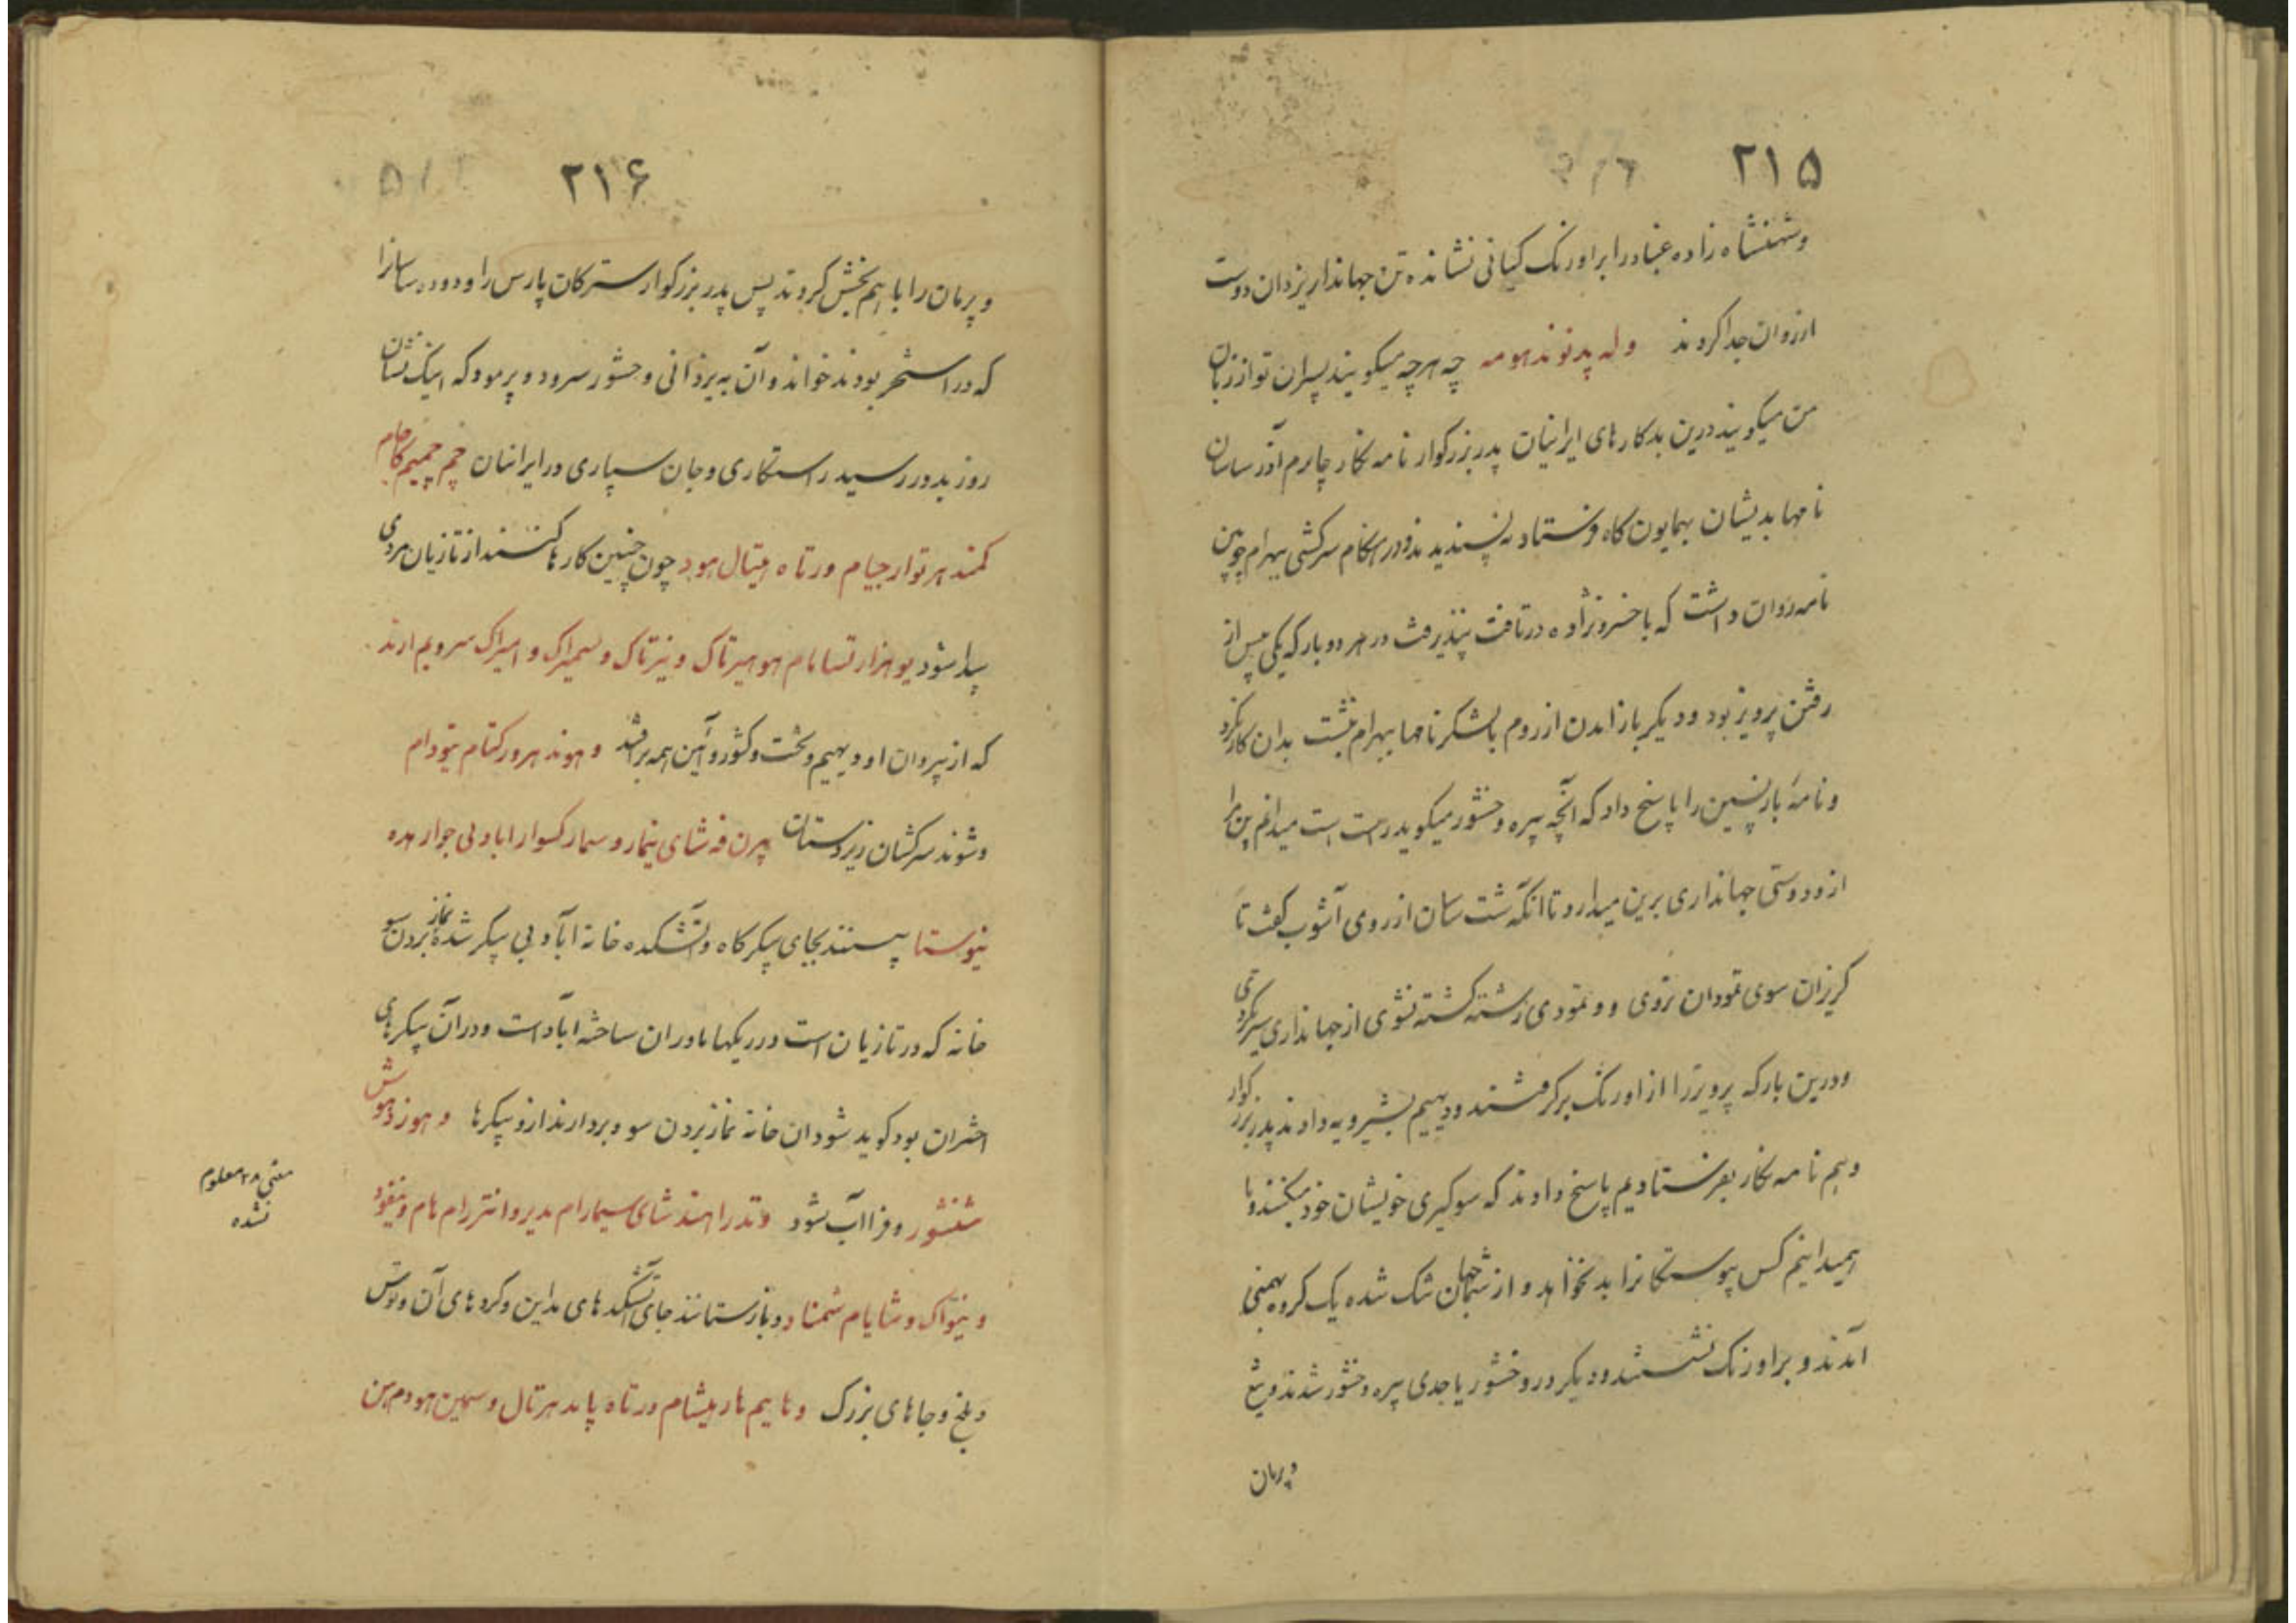 ۲۱۵
وشهنشاه زاده غباد را براورنک کیانی نشانده تن جهاندار یزدان دوست
ازروان جدا کردند وله پدنوند هومه چه هرچه میکویند پسران تو از زبان
من میکویند درین بدکارهای ایرانیان پدر بزرکوار نامه نکار چارم آذر ساسان
نامها بدیشان بهمایون کاه فرستاد نپسندیدند و در هنکام سرکشی بهرام چوبین
نامه روان داشت که با خسرو نژاده درتافت پنذیرفت در هر دو بار که یکی پس از
رفتن پرویز بود و دیکر باز امدن از روم با لشکر نامها ببهرام نبشت بدان کار نکرد
و نامهٔ بازپسین را پاسخ داد که آنچه پیره وخشور میکوید راست است میدانم این را
از و دوستی جهانداری برین میدارد تا انکه شت ساسان از روی آشوب کفت تا
کریزان سوی تودان نروی و و نمودی رشته کشته نشوی از جهانداری سیر نکردی
و درین بار که پرویز را از اورنک برکرفتند و دیهیم بشیرویه دادند پدر بزرکوار
و هم نامه نکار بفرستادیم پاسخ دادند که سوکیری خویشان خود میکنند و ما
همیدانیم کس پیوستکانرا بد نخواهد و از شت جهان تنک شده یک کروه بهمنی
آمدند و براورنک نشستند و دیکر در وخشور یا جدی پیره وخشور شدند و تیغ
و پرمان
۲۱۶
و پرمان را با هم بخش کردند پس پدر بزرکوار سترکان پارس را و دوده ساسانرا
که در استخر بودند خواند و آن به یزدانی وخشور سرود و پرمود که اینک نشان
روز بد در رسید راستکاری و جان سپاری در ایرانیان خم چمیم کاجام
کمند هرتوار جیام ورتاه هیتال هود چون چنین کارها کنند از تازیان مردی
پیدا شود یو هزار تسامام هو هیرتاک و نیرتاک و سمیراک و امیراک سرویم ارند
که از پیروان او دیهیم و تخت و کشور و آیین همه برافتد و هوند هرورکتام نیودام
و شوند سرکشان زیردستان پرن فه شای نیمار و سمار کسوار اباد بی جوار هده
نیوستا پسنند بجای پیکرکاه و آتشکده خانه آباد بی پیکر شده نماز بردن سو
خانه که در تازیان است در ریکها ماوران ساخته آباد است و در آن پیکرهای
اختران بود کوید شود ان خانه نماز بردن سو و بردارند ازو پیکرها و هوز دهوش
شنشور و فراآب شود وندرا هندشای سیمارام مدیر و انترام هام و نیفود
و نیواک و شایام شمناد و بازستانند جای آتشکدهای مداین و کردهای آن و توس
و بلخ و جاهای بزرک و هایم هار هیشام ورتاه پاید هرتال و سمین هودم من
معنی ۲۸ معلوم
نشده